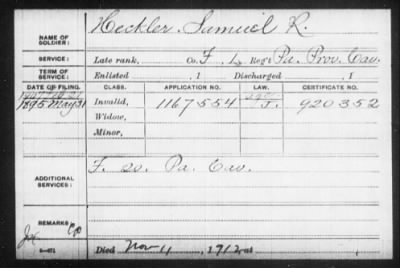 NAME OF SOLDIER: Heckler, Samuel R.
SERVICE: Late rank, Co. F, 1, Reg't Pa. Prov. Cav.
TERM OF SERVICE: Enlisted , 1 Discharged , 1
DATE OF FILING. CLASS. APPLICATION NO. LAW. CERTIFICATE NO.
1895 May 31 Invalid, 1167554 J. 920352
Widow,
Minor,
ADDITIONAL SERVICES: F. 20. Pa. Cav.
REMARKS:
Died Nov 4, 1912, at